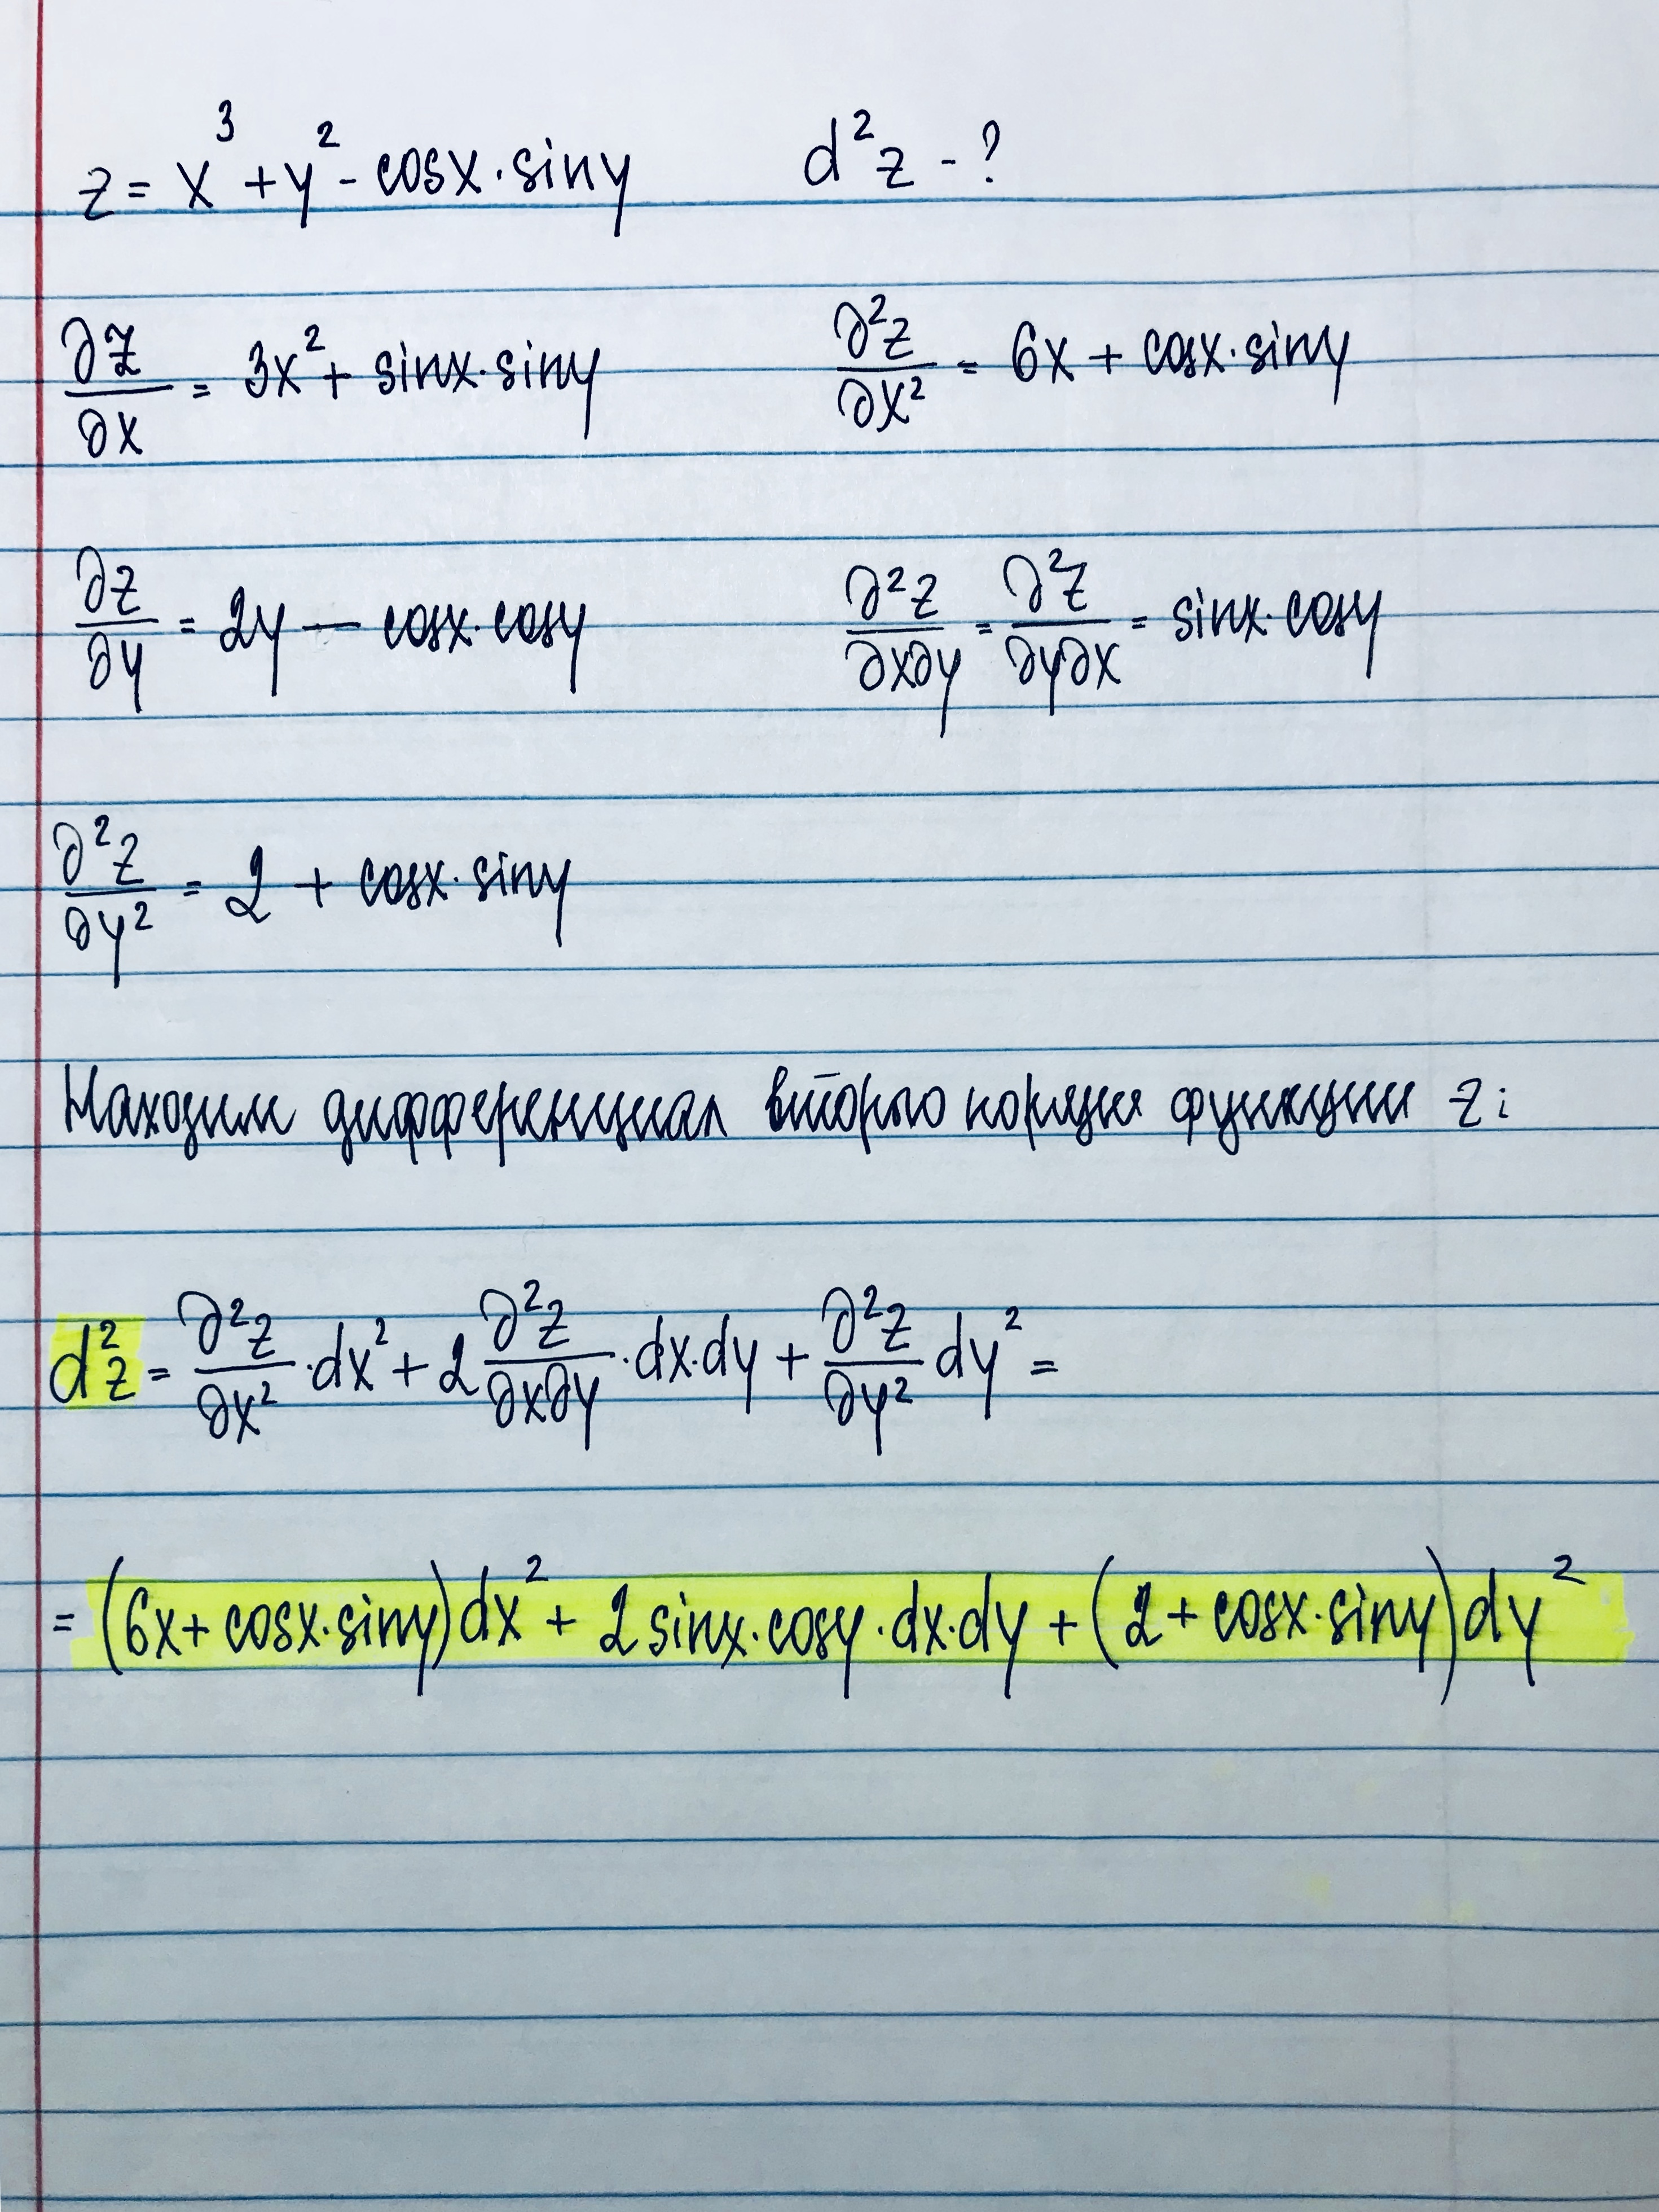 z = x³ + y² - cosx · siny d²z - ?
∂z/∂x = 3x² + sinx · siny ∂²z/∂x² = 6x + cosx · siny
∂z/∂y = 2y — cosx · cosy ∂²z/∂x∂y = ∂²z/∂y∂x = sinx · cosy
∂²z/∂y² = 2 + cosx · siny
Находим дифференциал второго порядка функции z:
d²z = ∂²z/∂x² · dx² + 2 ∂²z/∂x∂y · dx · dy + ∂²z/∂y² dy² =
= (6x + cosx · siny) dx² + 2 sinx · cosy · dx · dy + (2 + cosx · siny) dy²